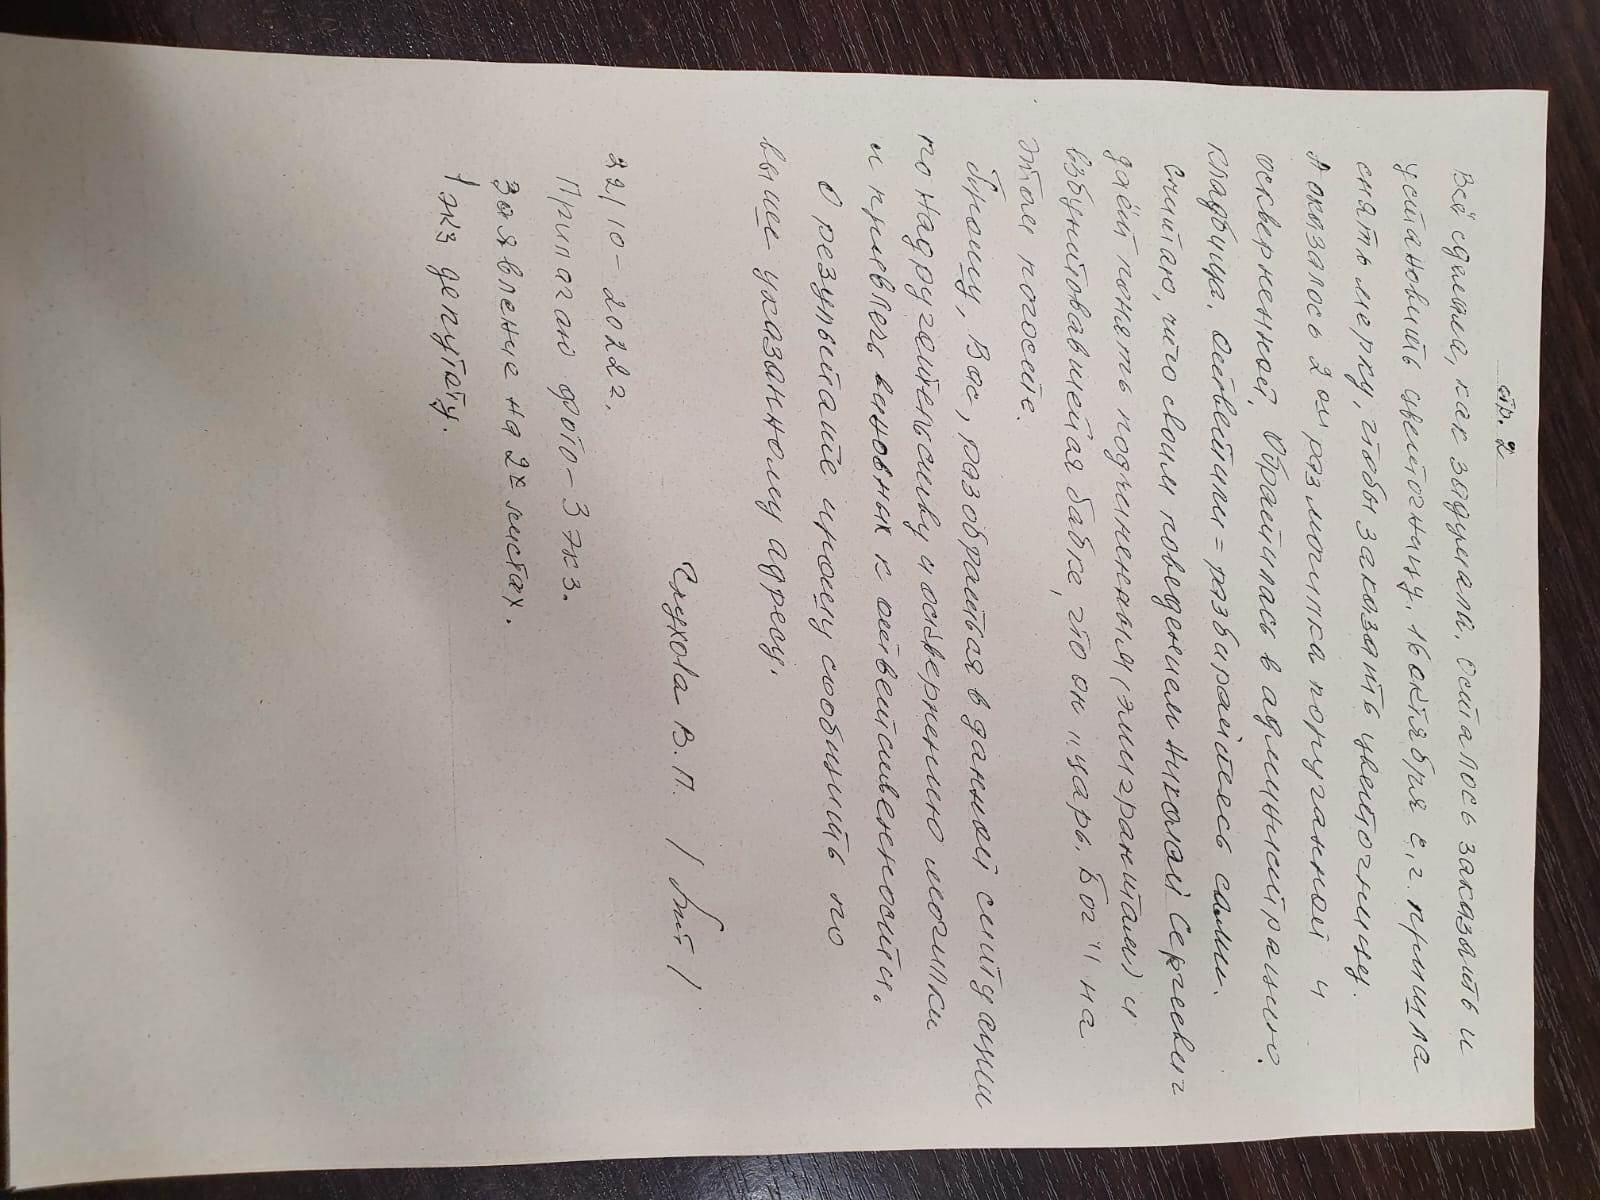 стр. 2
Всё сделала, как задумала. Осталось заказать и
установить цветочницу. 16 октября с.г. пришла
снять мерку, чтобы заказать цветочницу.
А оказалось 2ой раз могилка поруганной и
оскверненной. Обратилась в администрацию
кладбища. Ответили = разбирайтесь сами.
Считаю, что своим поведением Николай Сергеевич
даёт понять подчиненным (эмигрантам) и
взбунтовавшейся бабке, что он "царь, Бог" на
этом погосте.
Прошу, Вас, разобраться в данной ситуации
по надругательству и осквернению могилки
и привлечь виновных к ответственности.
О результате прошу сообщить по
выше указанному адресу.
Глухова В.П. / /
22/10-2022г.
Прилагаю фото-3 экз.
Заявление на 2х листах.
1 экз депутату.